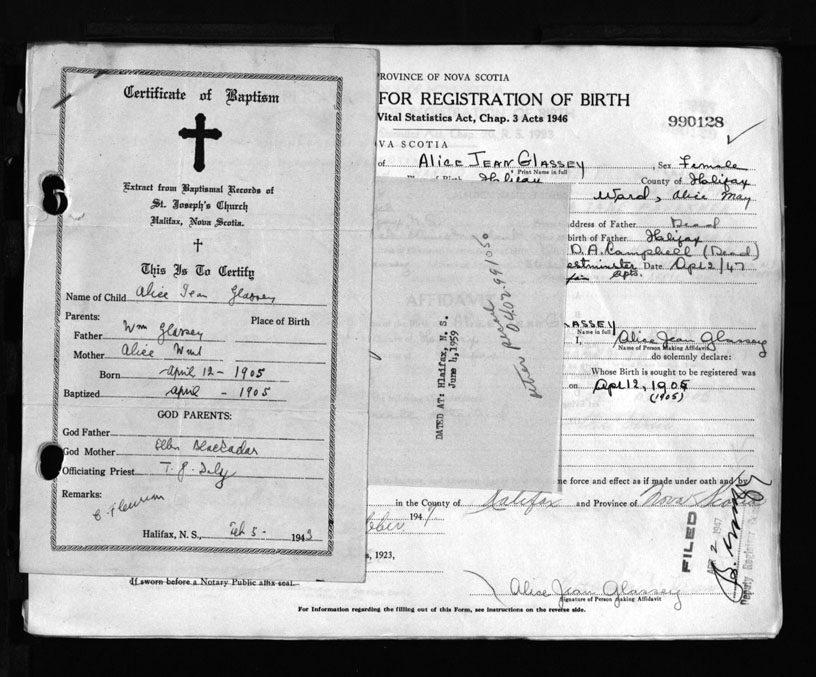 Certificate of Baptism
Extract from Baptismal Records of
St. Joseph's Church
Halifax, Nova Scotia.
This Is To Certify
Name of Child Alice Jean Glassey
Parents: Place of Birth
Father Wm Glassey
Mother Alice
Born April 12 - 1905
Baptized April - 1905
GOD PARENTS:
God Father
God Mother Ellen
Officiating Priest T. J. Daly
Remarks:
Halifax, N. S., Feb 5 - 1943
PROVINCE OF NOVA SCOTIA
FOR REGISTRATION OF BIRTH
Vital Statistics Act, Chap. 3 Acts 1946
990128
NOVA SCOTIA
of ALICE JEAN GLASSEY, Sex Female
Print Name in full
Halifax County of Halifax
Ward, Alice May
address of Father Dead
birth of Father Halifax
D. A. Campbell (Dead)
Westminster Date Apl 2/47
Apts.
AFFIDAVIT
DATED AT: Hlaifax, N. S.
June 4, 1959
GLASSEY
Name in full
I, Alice Jean Glassey
Name of Person Making Affidavit
do solemnly declare:
Whose Birth is sought to be registered was
on Apl 12, 1905
(1905)
me force and effect as if made under oath and by
in the County of Halifax and Province of Nova Scotia
1947
s, 1923,
FILED
2 1947
Deputy Registrar
If sworn before a Notary Public affix seal.
Alice Jean Glassey
Signature of Person Making Affidavit
For Information regarding the filling out of this Form, see instructions on the reverse side.